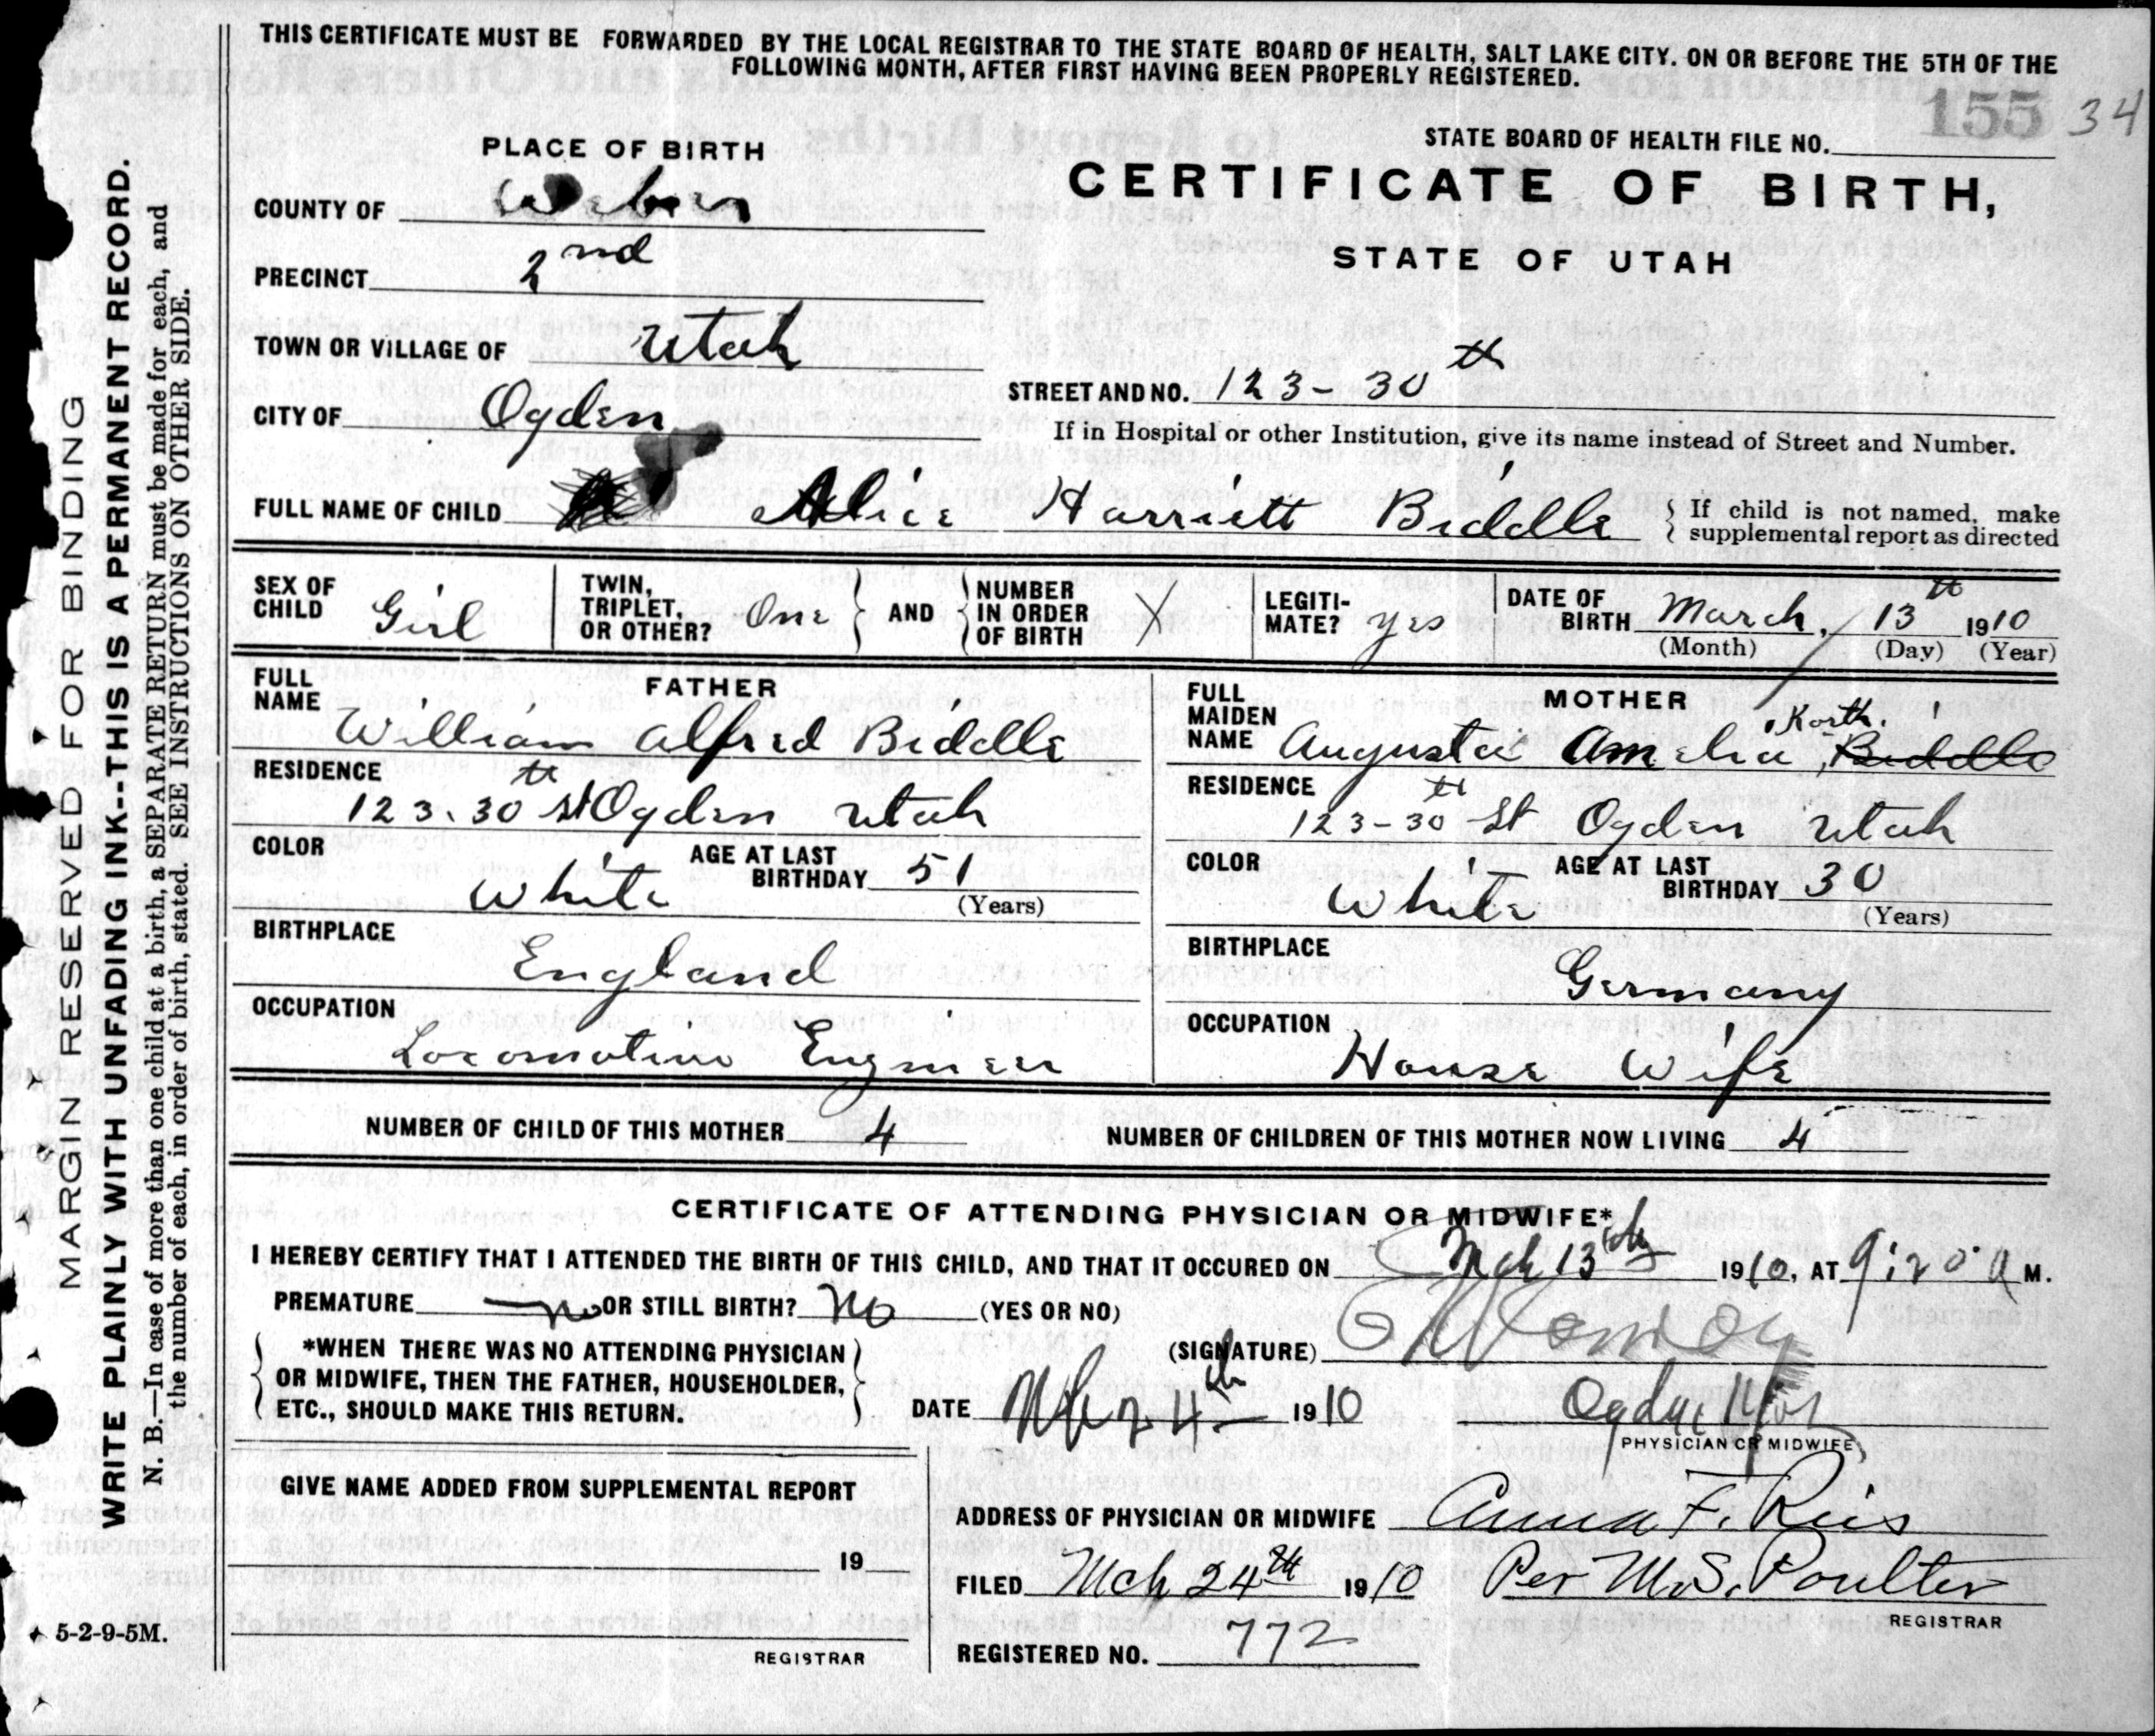 THIS CERTIFICATE MUST BE FORWARDED BY THE LOCAL REGISTRAR TO THE STATE BOARD OF HEALTH, SALT LAKE CITY. ON OR BEFORE THE 5TH OF THE
FOLLOWING MONTH, AFTER FIRST HAVING BEEN PROPERLY REGISTERED.
155 34
STATE BOARD OF HEALTH FILE NO.
PLACE OF BIRTH
CERTIFICATE OF BIRTH,
STATE OF UTAH
COUNTY OF Weber
PRECINCT 2nd
TOWN OR VILLAGE OF Utah
CITY OF Ogden
STREET AND NO. 123-30th
If in Hospital or other Institution, give its name instead of Street and Number.
FULL NAME OF CHILD Alice Harriett Biddle
If child is not named, make
supplemental report as directed
SEX OF CHILD Girl
TWIN, TRIPLET, OR OTHER? One
AND
NUMBER IN ORDER OF BIRTH X
LEGITIMATE? yes
DATE OF BIRTH March, 13th 1910
(Month) (Day) (Year)
FATHER
FULL NAME William Alfred Biddle
RESIDENCE 123.30th St Ogden Utah
COLOR White
AGE AT LAST BIRTHDAY 51
(Years)
BIRTHPLACE England
OCCUPATION Locomotive Engineer
MOTHER
FULL MAIDEN NAME Augusta Amelia Korth. Biddle
RESIDENCE 123-30th St Ogden Utah
COLOR White
AGE AT LAST BIRTHDAY 30
(Years)
BIRTHPLACE Germany
OCCUPATION House Wife
NUMBER OF CHILD OF THIS MOTHER 4
NUMBER OF CHILDREN OF THIS MOTHER NOW LIVING 4
CERTIFICATE OF ATTENDING PHYSICIAN OR MIDWIFE*
I HEREBY CERTIFY THAT I ATTENDED THE BIRTH OF THIS CHILD, AND THAT IT OCCURED ON Mch 13th 1910, AT 9:20 A M.
PREMATURE no OR STILL BIRTH? No (YES OR NO)
*WHEN THERE WAS NO ATTENDING PHYSICIAN
OR MIDWIFE, THEN THE FATHER, HOUSEHOLDER,
ETC., SHOULD MAKE THIS RETURN.
(SIGNATURE)
DATE 1910
PHYSICIAN OR MIDWIFE
GIVE NAME ADDED FROM SUPPLEMENTAL REPORT
19
REGISTRAR
ADDRESS OF PHYSICIAN OR MIDWIFE Anna F. Reis
FILED Mch 24th 1910 Per M.S. Poulter
REGISTRAR
REGISTERED NO. 772
MARGIN RESERVED FOR BINDING
WRITE PLAINLY WITH UNFADING INK--THIS IS A PERMANENT RECORD.
N. B.—In case of more than one child at a birth, a SEPARATE RETURN must be made for each, and
the number of each, in order of birth, stated. SEE INSTRUCTIONS ON OTHER SIDE.
5-2-9-5M.